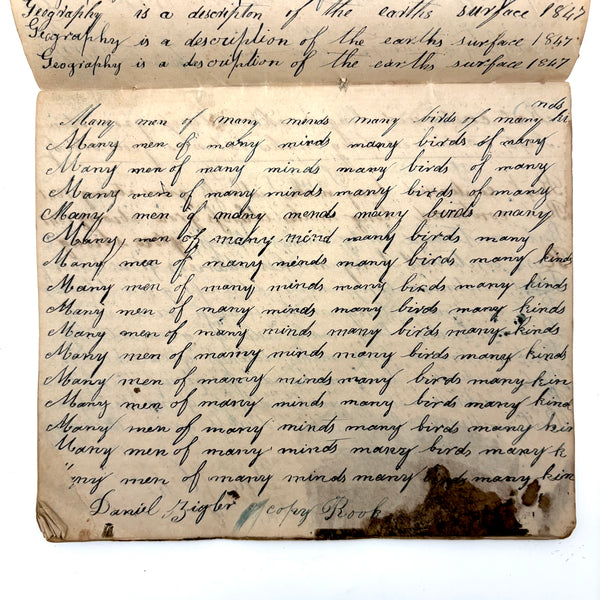 Geography is a descripton of the earths surface 1847
Geography is a description of the earths surface 1847
Geography is a description of the earths surface 1847
nds
Many men of many minds many birds of many ki
Many men of many minds many birds of many
Many men of many minds many birds of many
Many men of many minds many birds of many
Many men of many mends many birds many
Many men of many mind many birds many
Many men of many minds many birds many kinds
Many men of many minds many birds many kinds
Many men of many minds many birds many kinds
Many men of many minds many birds many kinds
Many men of many minds many birds many kinds
Many men of many minds many birds many kin
Many men of many minds many birds many kind
Many men of many minds many birds many kin
Many men of many minds many birds many k
ny men of many minds many birds many kin
Daniel Zigler copy Book